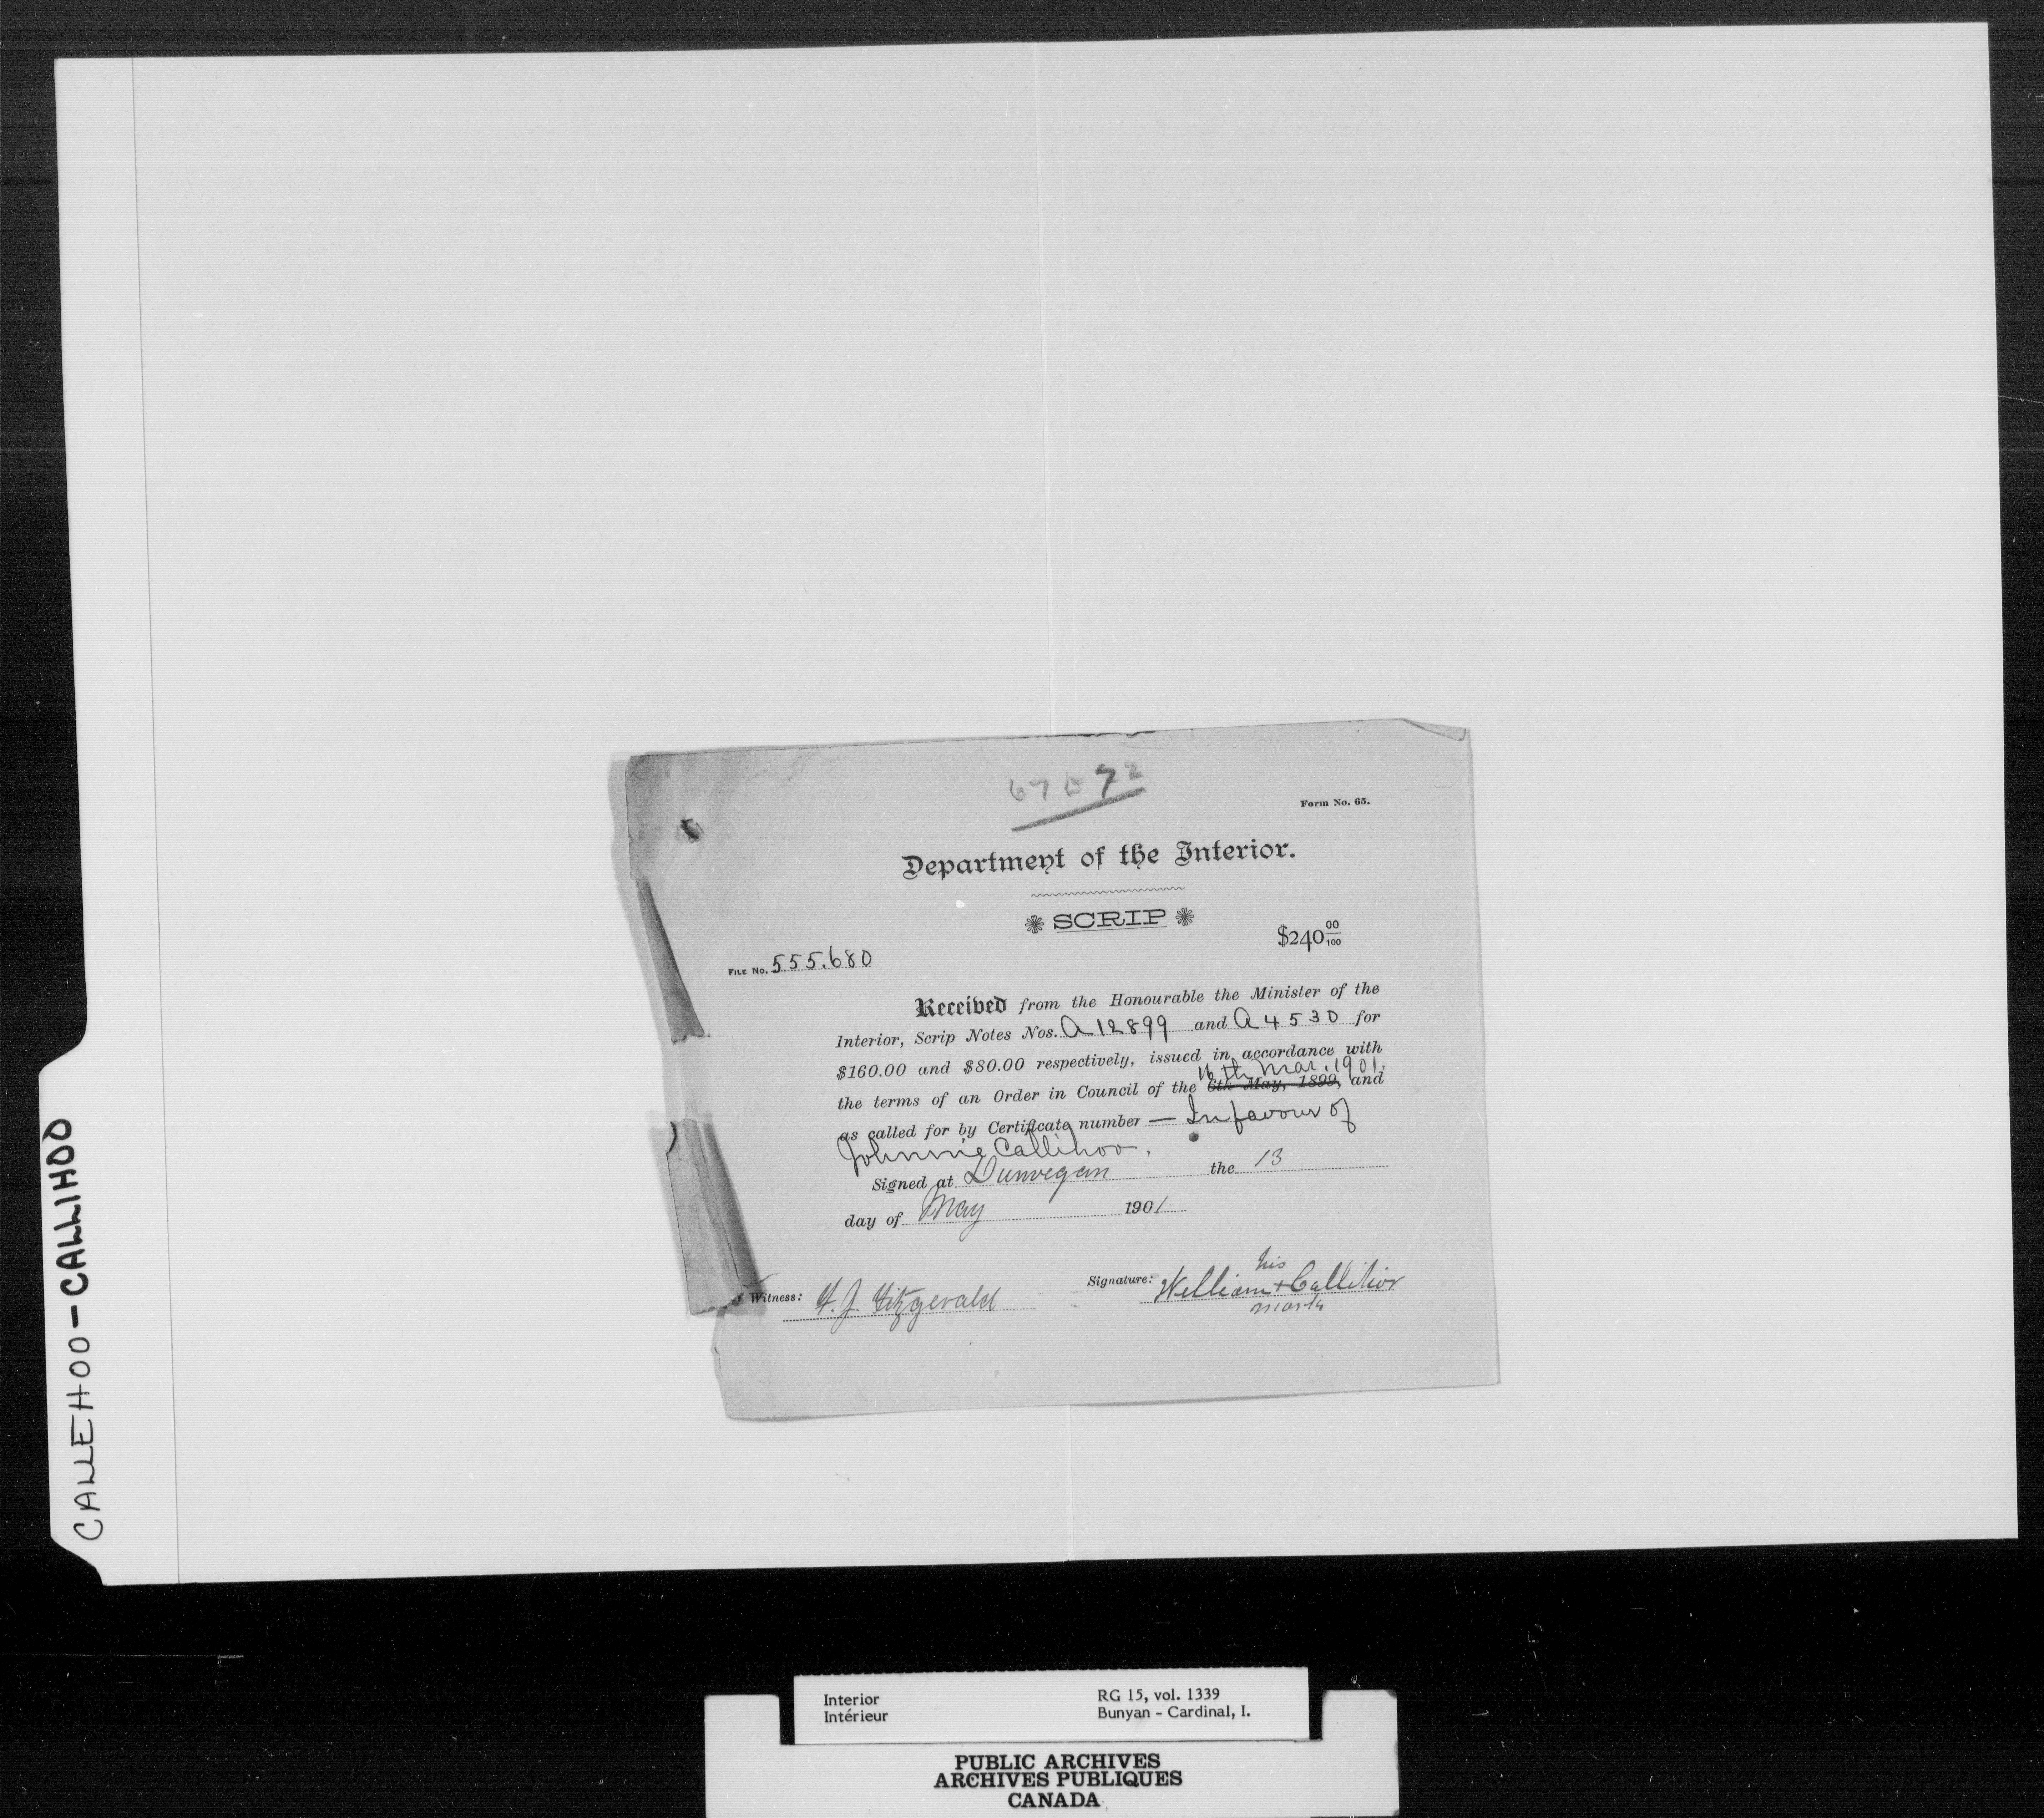 CALLEHOO-CALLIHOO
Form No. 65.
Department of the Interior.
SCRIP
$240 00/100
FILE No. 555.680
Received from the Honourable the Minister of the
Interior, Scrip Notes Nos. A 12899 and A 4530 for
$160.00 and $80.00 respectively, issued in accordance with
16th Mar. 1901.
the terms of an Order in Council of the 6th May, 1899, and
as called for by Certificate number — In favour of
Johnnie Callihoo.
Signed at Dunvegan the 13
day of May 1901
his
Witness: F. J. Fitzgerald Signature: William + Callihoo
mark
Interior RG 15, vol. 1339
Intérieur Bunyan - Cardinal, I.
PUBLIC ARCHIVES
ARCHIVES PUBLIQUES
CANADA